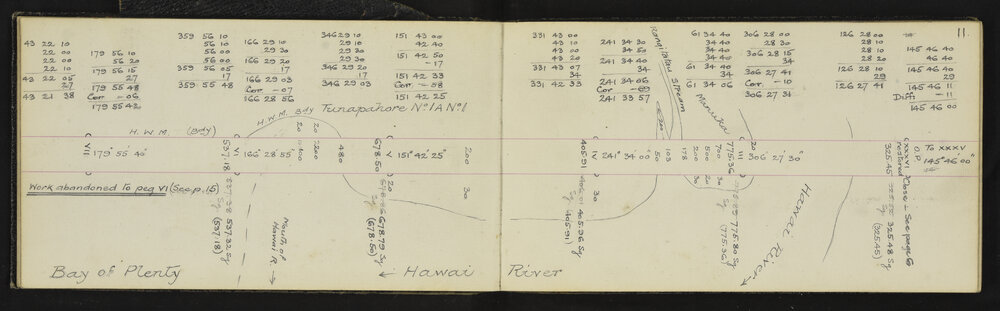 11.
359 56 10
56 10
56 00
359 56 05
17
359 55 48
43 22 10
22 00
22 00
22 10
43 22 05
27
43 21 38
179 56 10
56 20
179 56 15
27
179 55 48
Corr — 06
179 55 42
166 29 10
29 30
166 29 20
17
166 29 03
Corr — 07
166 28 56
346 29 10
29 10
29 30
346 29 20
17
346 29 03
151 43 00
42 40
151 42 50
— 17
151 42 33
Corr — 08
151 42 25
331 43 00
43 10
43 00
43 20
331 43 07
34
331 42 33
241 34 30
34 50
241 34 40
34
241 34 06
Corr — 09
241 33 57
61 34 40
34 40
34 40
61 34 40
34
61 34 06
306 28 00
28 30
306 28 15
34
306 27 41
Corr. — 10
306 27 31
126 28 00
28 10
28 20
126 28 10
29
126 27 41
145 46 40
46 40
145 46 40
29
145 46 11
Diff — 11
145 46 00
H.W.M. Bdy
Tunapahore No 1A No 1
Rangitatau Stream
Manuka
H.W.M. (Bdy)
VII 179° 55' 40"
537.18
VI 166° 28' 55"
20
100
20
200
480
678.50
V 151° 42' 25"
200
405.91
IV 241° 34' 00"
50
200
103
178
200
500
700
775.36
III 306° 27' 30"
XXXVI
restored
325.45
O.P.
To XXXV
145° 46' 00"
Work abandoned to peg VI (See p. 15)
537.38 537.32 Sy
(537.18)
20
678.86 678.79 Sy
Sy (678.50)
30
30
406.01 405.96 Sy
Sy (405.91)
30
20
30
775.80 Sy
(775.36)
Close L See page 6
325.48 Sy
Sy (325.45)
mouth of
Hawai R.
Hawai River
Bay of Plenty
← Hawai River